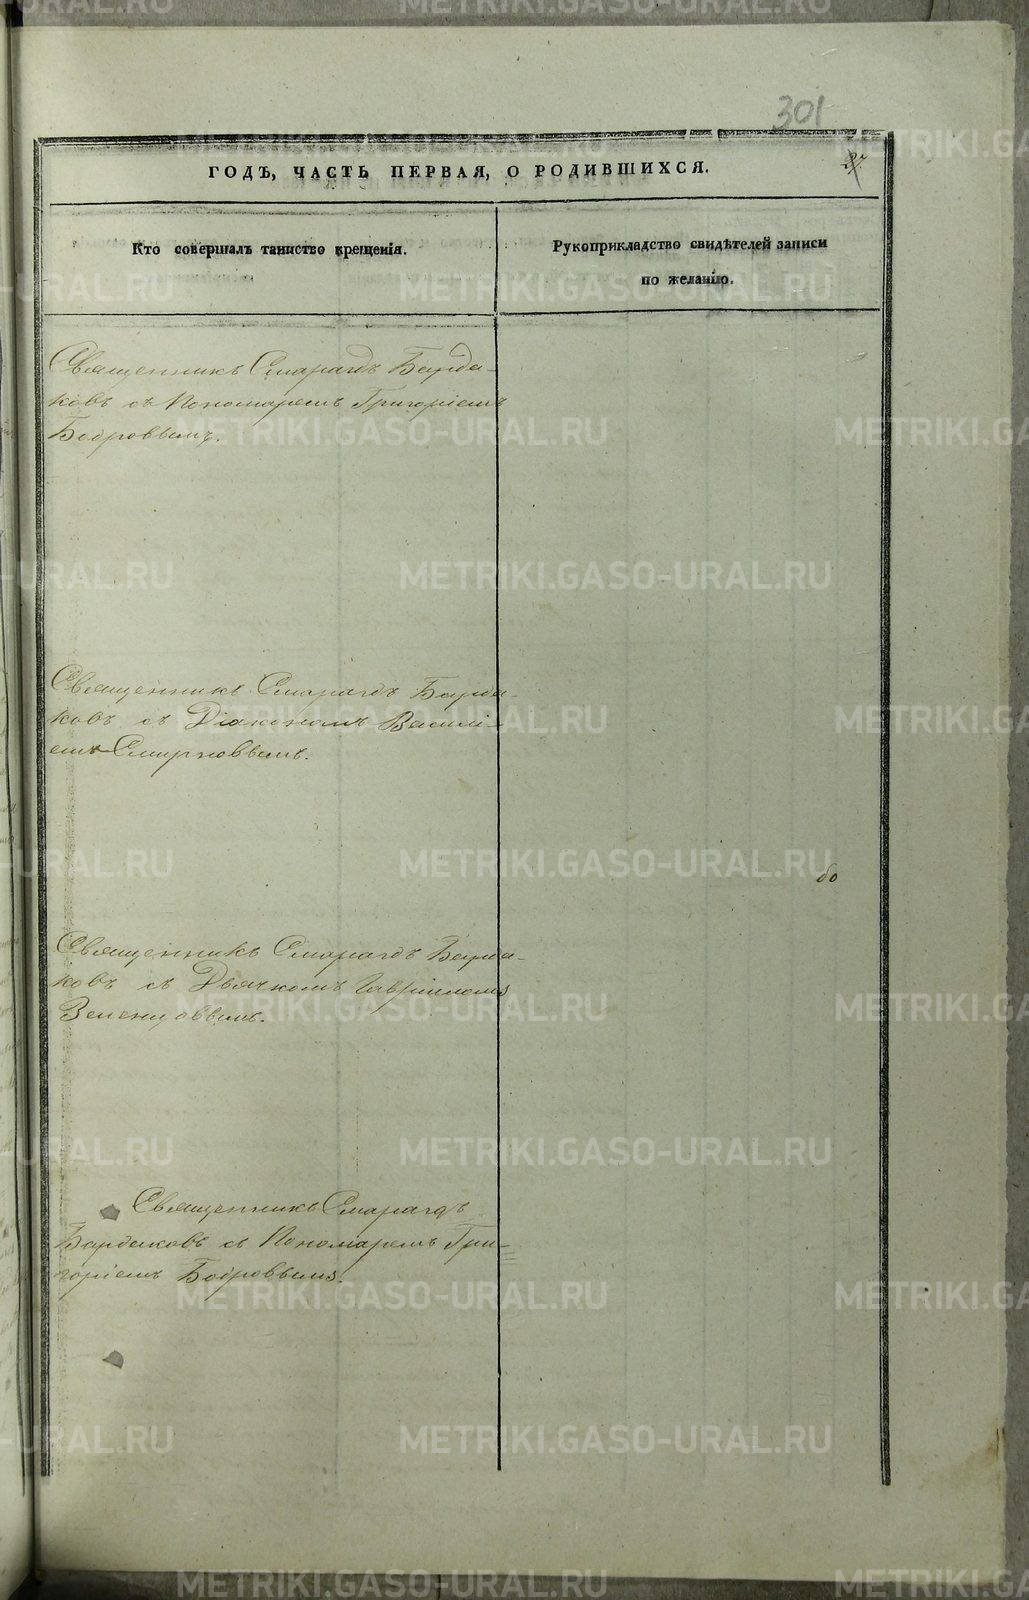 301
27.
ГОДЪ, ЧАСТЬ ПЕРВАЯ, О РОДИВШИХСЯ.
Кто совершалъ таинство крещенія.
Рукоприкладство свидѣтелей записи
по желанію.
Священникъ Смарагдъ Бурда-
ковъ съ Пономаремъ Григоріемъ
Бобровымъ.
Священникъ Смарагдъ Бурда-
ковъ съ Діакономъ Василі-
емъ Смирновымъ.
до
Священникъ Смарагдъ Бурда-
ковъ съ Дьячкомъ Гавріиломъ
Земенцовымъ.
Священникъ Смарагдъ
Бурдаковъ съ Пономаремъ Гри-
горіемъ Бобровымъ.
METRIKI.GASO-URAL.RU